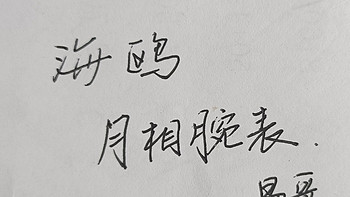 海鸥
月相腕表.